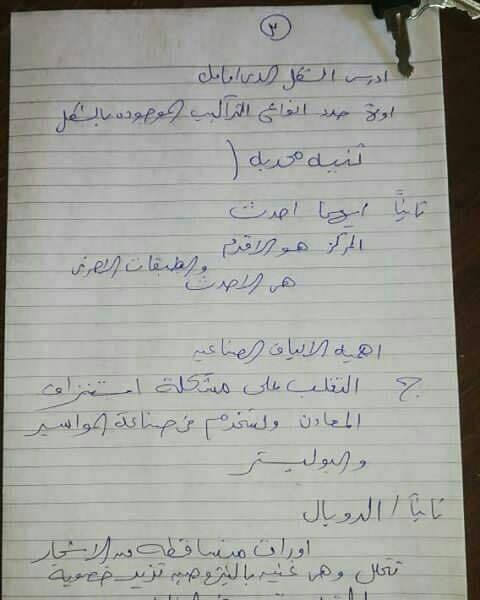 ٣
ادرس الشكل الذى امامك
اولا حدد انواع التراكيب الموجوده بالشكل
ثنيه محدبه (
ثانيًا ايهما احدث
المركز هو الاقدم
والطبقات الاخرى
هى الاحدث
اهميه الالياف الصناعيه
ج التغلب على مشكلة استنزاف
المعادن وتستخدم فى صناعة المواسير
والبوليستر
ثانيًا / الدوبال
اوراق متساقطه من الاشجار
تتحلل وهى غنيه بالنتروجين تزيد خصوبة